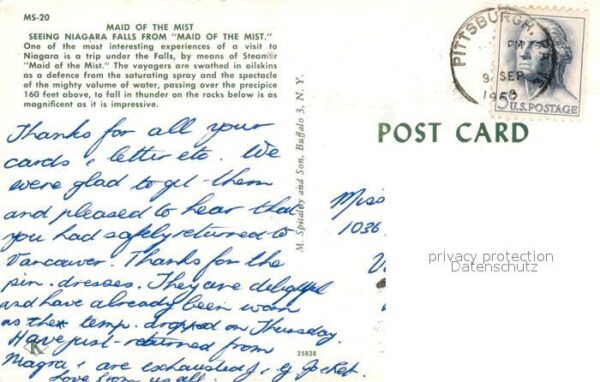 MS-20
MAID OF THE MIST
SEEING NIAGARA FALLS FROM "MAID OF THE MIST."
One of the most interesting experiences of a visit to
Niagara is a trip under the Falls, by means of Steamer
"Maid of the Mist." The voyagers are swathed in oilskins
as a defence from the saturating spray and the spectacle
of the mighty volume of water, passing over the precipice
160 feet above, to fall in thunder on the rocks below is as
magnificent as it is impressive.
Thanks for all your
cards, letter etc. We
were glad to get them
and pleased to hear that
you had safely returned to
Vancouver. Thanks for the
pin. dresses. They are delightful
and have already been worn
as the temp. dropped on Thursday.
Have just returned from
Niagra, are exhausted
Love from us all.
K
25838
M. Spitalny and Son, Buffalo 3, N. Y.
PITTSBURGH, PA
PM
SEP
5 U.S. POSTAGE
POST CARD
Miss
1036
privacy protection
Datenschutz